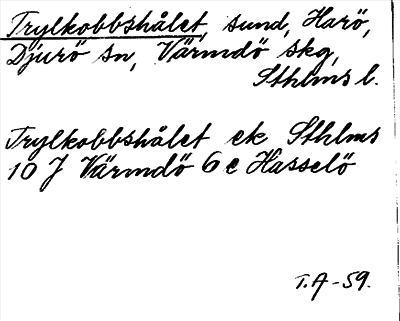 Trylkobbshålet, sund, Harö,
Djurö sn, Värmdö skg,
Sthlms l.
Trylkobbshålet ek Sthlms
10 J Värmdö 6 e Hasselö
T.A-59.